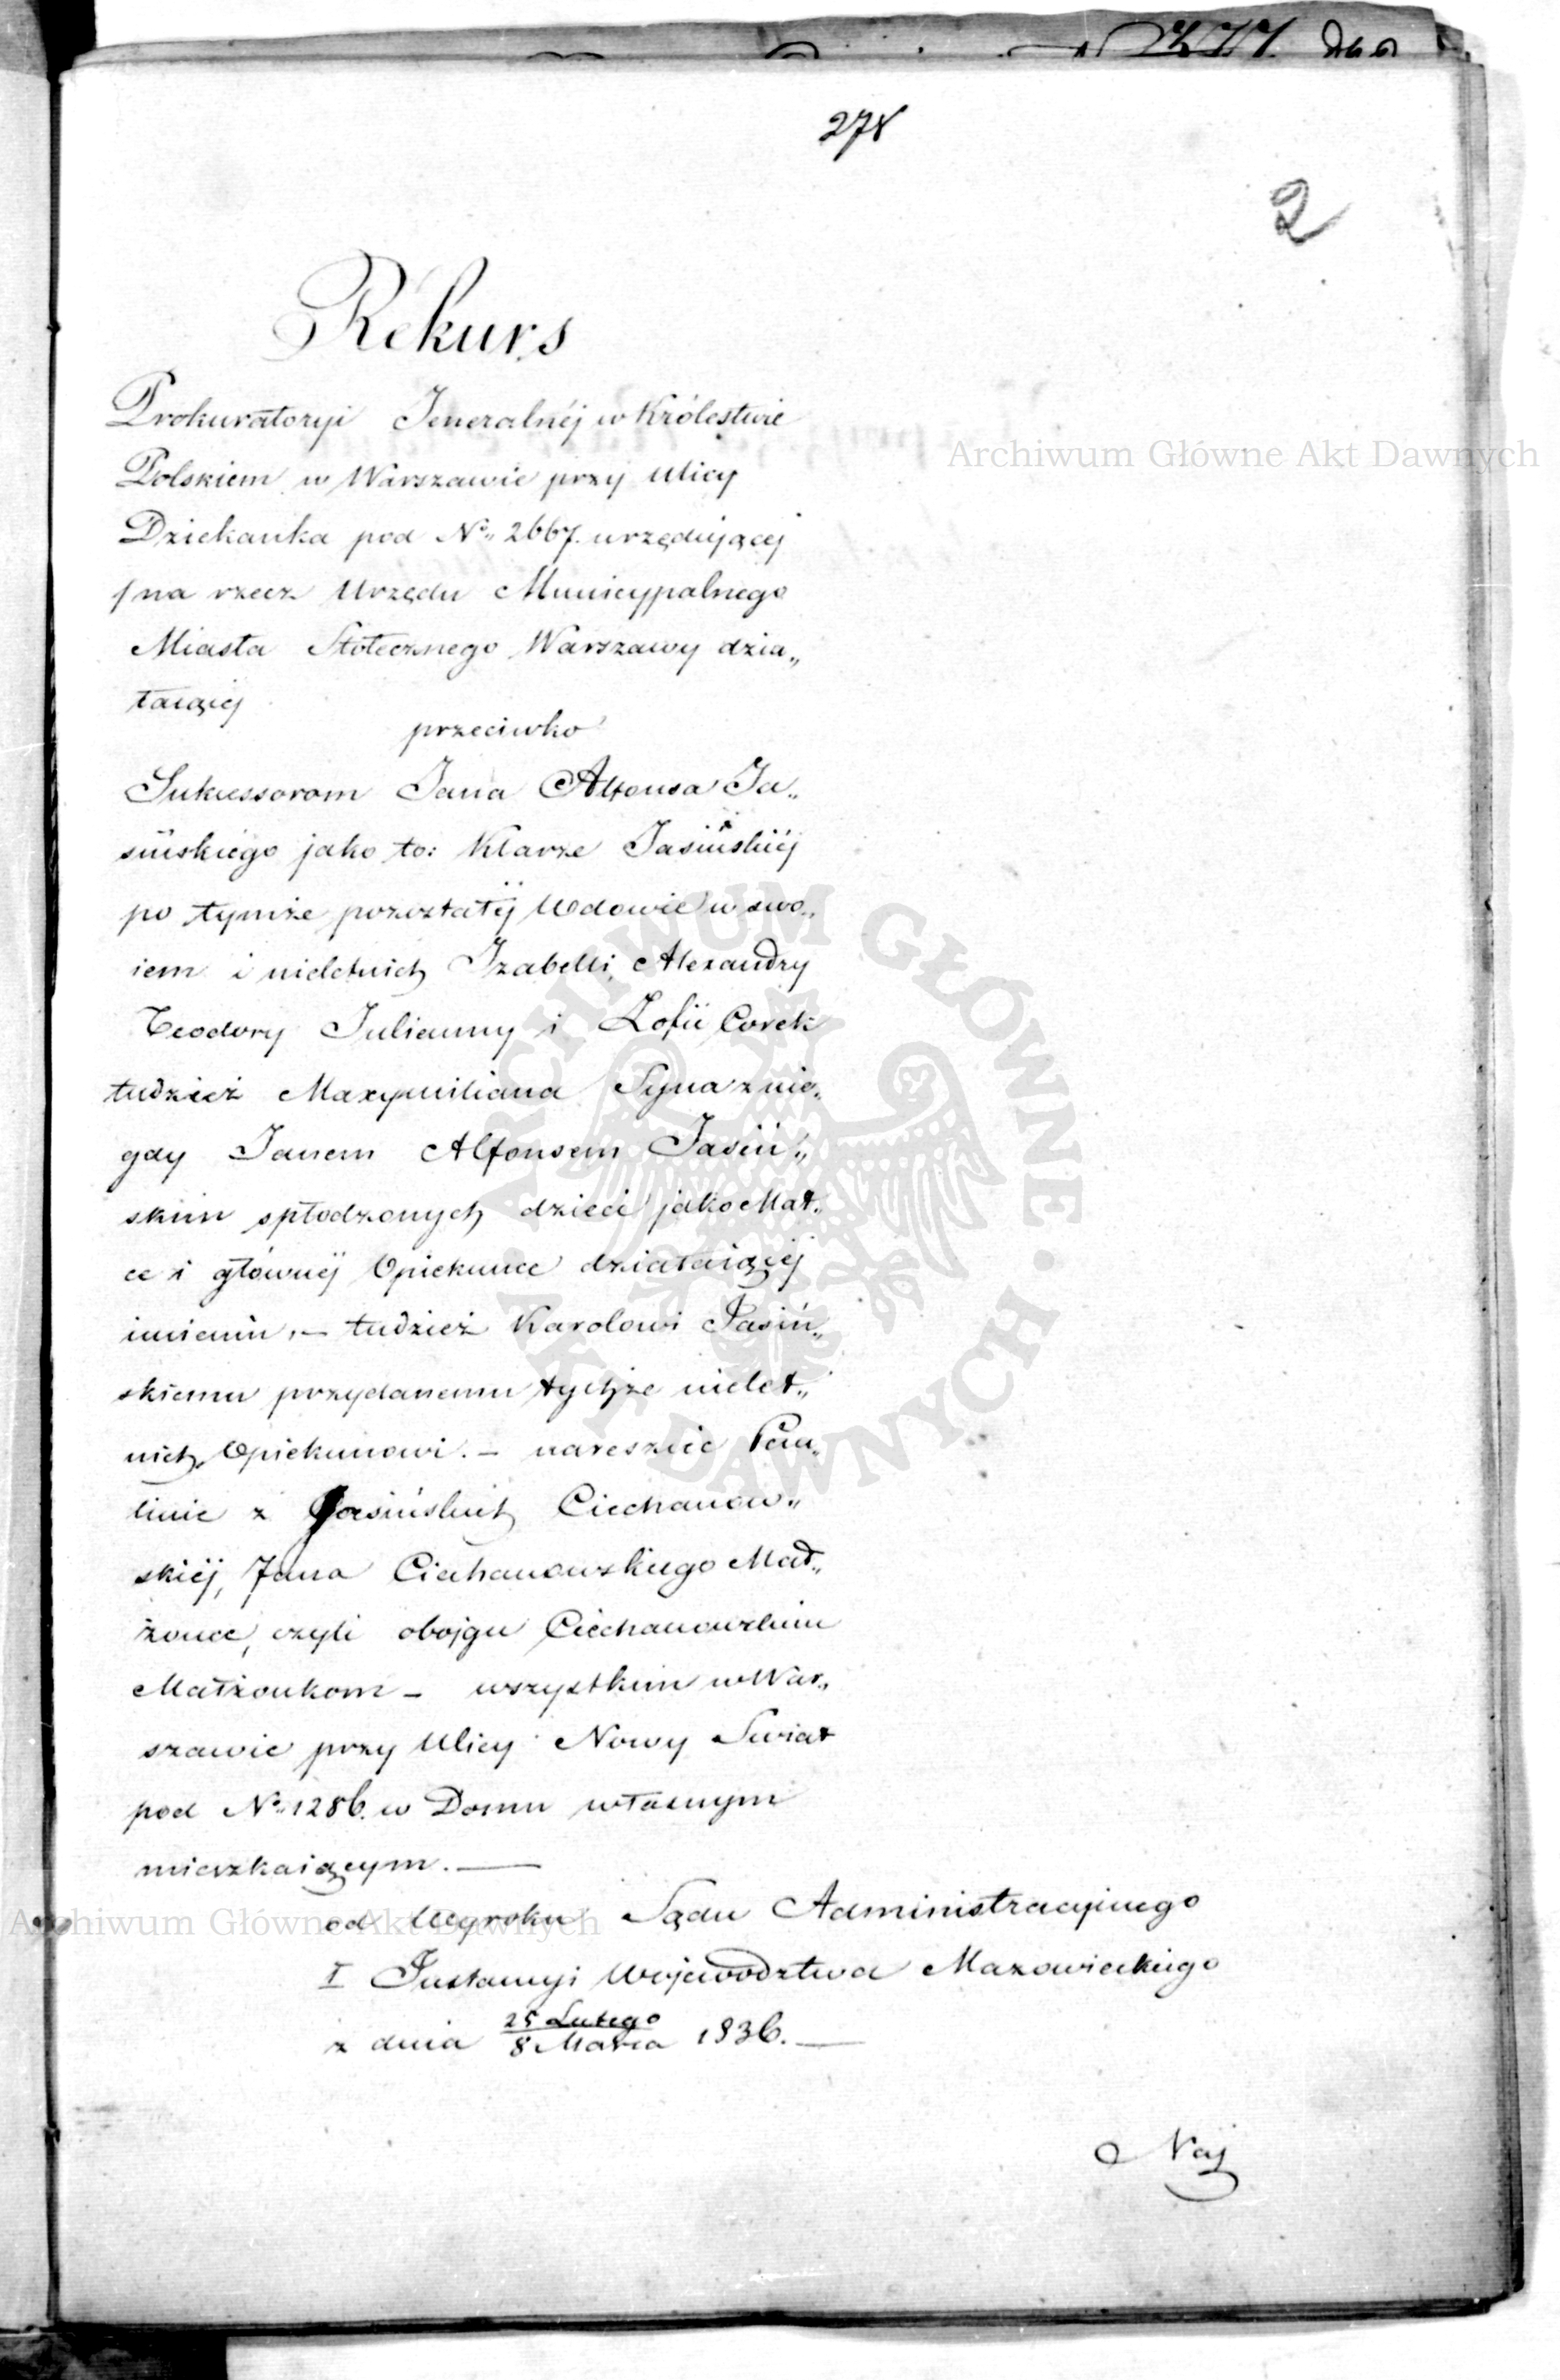 278
2
Rekurs
Prokuratoryi Jeneralnéj w Królestwie
Polskiem w Warszawie przy Ulicy
Dziekanka pod No. 2667. urzędującej
/na rzecz Urzędu Municypalnego
Miasta Stołecznego Warszawy dzia„
łaiącej
przeciwko
Sukcessorom Jana Alfonsa Ja„
sińskiego jako to: Klarze Jasińskiéj
po tymże pozostałéj Wdowie w swo„
iem i nieletnich Izabelli, Alexandry
Teodory Julianny i Zofii Corek
tudzież Maxymiliana Syna z nie„
gdy Janem Alfonsem Jasiń„
skim spłodzonych dzieci jako Mat„
ce i głównéj Opiekunce działaiącéj
imieniu, – tudzież Karolowi Jasiń„
skiemu przydanemu tychże nielet„
nich Opiekunowi. – nareszcie Pau„
linie z Jasińskich Ciechanow„
skiéj, Jana Ciechanowskiego Mał„
żonce, czyli obojgu Ciechanowskim
Małżonkom – wszystkim w War„
szawie przy Ulicy Nowy Swiat
pod No. 1286. w Domu własnym
mieszkaiącym. —
od Wyroku Sądu Administracyjnego
I Instancyi Województwa Mazowieckiego
z dnia 25 Lutego / 8 Marca 1836. —
Naj
Archiwum Główne Akt Dawnych
ARCHIWUM GŁÓWNE AKT DAWNYCH
Archiwum Główne Akt Dawnych